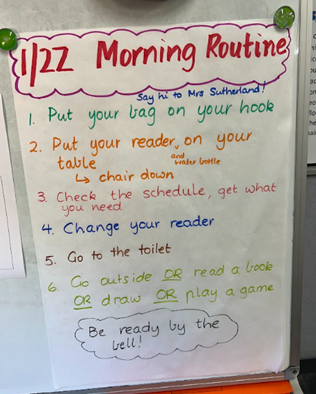 1/2Z Morning Routine
Say hi to Mrs Sutherland!
1. Put your bag on your hook
2. Put your reader, on your
and water bottle
table
↳ chair down
3. Check the schedule, get what
you need
4. Change your reader
5. Go to the toilet
6. Go outside OR read a book
OR draw OR play a game
Be ready by the
bell!